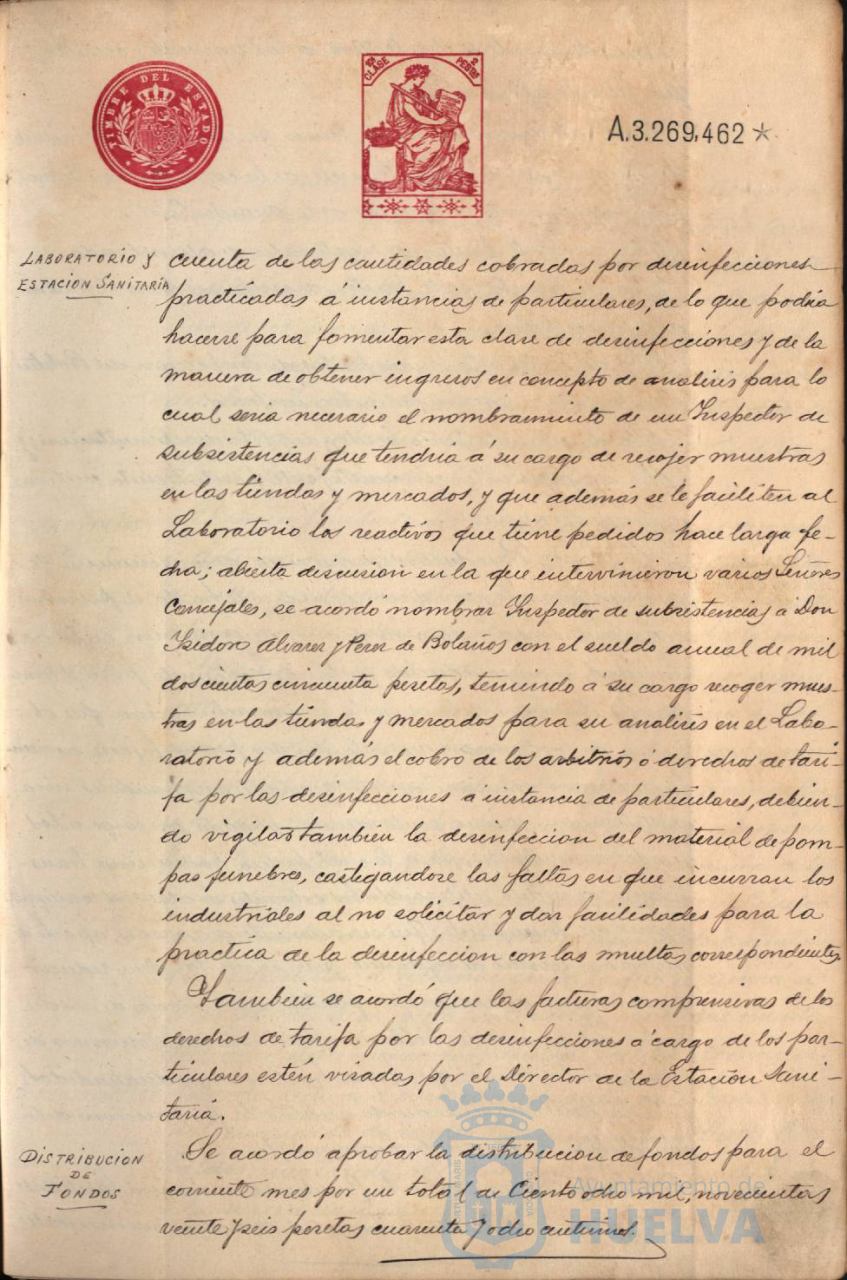 TIMBRE DEL ESTADO
10ª CLASE
2 PESETAS
A.3.269,462 *
LABORATORIO Y
ESTACION SANITARÍA
cuenta de las cantidades cobradas por desinfecciones
practicadas á instancias de particulares, de lo que podria
hacerse para fomentar esta clase de desinfecciones y de la
manera de obtener ingresos en concepto de analisis para lo
cual seria necesario el nombramiento de un Inspector de
subsistencias que tendria á su cargo de recojer muestras
en las tiendas y mercados, y que además se le faciliten al
Laboratorio los reactivos que tiene pedidos hace larga fe-
cha; abierta discusion en la que intervinieron varios Señores
Concejales, se acordó nombrar Inspector de subsistencias á Don
Isidoro Alvarez y Perez de Bolaños con el sueldo anual de mil
doscientas cincuenta pesetas, teniendo á su cargo recoger mues-
tras en las tiendas y mercados para su analisis en el Labo-
ratorio y además el cobro de los arbitrios ó derechos de tari-
fa por las desinfecciones á instancia de particulares, debien-
do vigilar también la desinfeccion del material de pom-
pas funebres, castigandose las faltas en que incurran los
industriales al no solicitar y dar facilidades para la
practica de la desinfeccion con las multas correspondientes.
Tambien se acordó que las facturas comprensivas de los
derechos de tarifa por las desinfecciones á cargo de los par-
ticulares estén visadas por el Director de la Estación Sani-
taria.
DISTRIBUCION
DE
FONDOS
Se acordó aprobar la distribucion de fondos para el
corriente mes por un total de Ciento ocho mil, novecientas
veinte y seis pesetas cuarenta y ocho centimos.
Ayuntamiento de
HUELVA